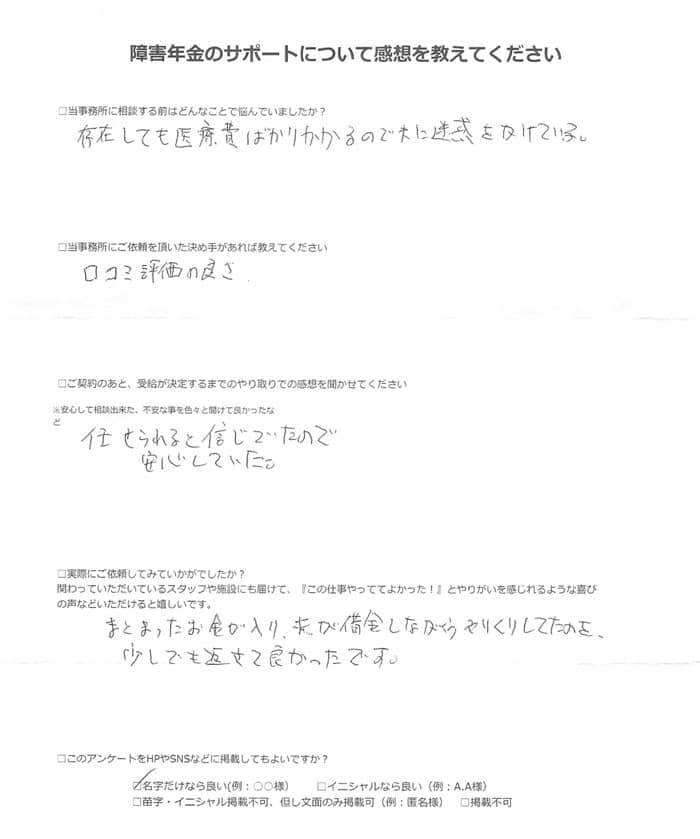 障害年金のサポートについて感想を教えてください
□当事務所に相談する前はどんなことで悩んでいましたか?
存在しても医療費ばかりかかるので夫に迷惑をかけている。
□当事務所にご依頼を頂いた決め手があれば教えてください
口コミ評価の良さ
□ご契約のあと、受給が決定するまでのやり取りでの感想を聞かせてください
※安心して相談出来た、不安な事を色々と聞けて良かったな
ど
任せられると信じていたので
安心していた。
□実際にご依頼してみていかがでしたか?
関わっていただいているスタッフや施設にも届けて、『この仕事やっててよかった!』とやりがいを感じれるような喜び
の声などいただけると嬉しいです。
まとまったお金が入り、夫が借金しながらやりくりしてたのを、
少しでも返せて良かったです。
□このアンケートをHPやSNSなどに掲載してもよいですか?
☑名字だけなら良い(例:○○様) □イニシャルなら良い(例:A.A様)
□苗字・イニシャル掲載不可、但し文面のみ掲載可(例:匿名様) □掲載不可